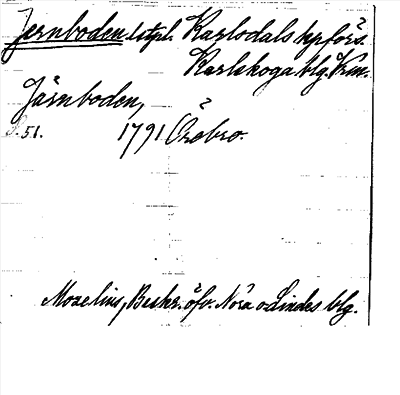 Jernboden ltpl. Karlsdals kpförs.
Karlskoga blg. Krm.
Järnboden,
S. 51. 1791 Örebro.
Mozelius, Beskr. öfv. Nora o Lindes blg.